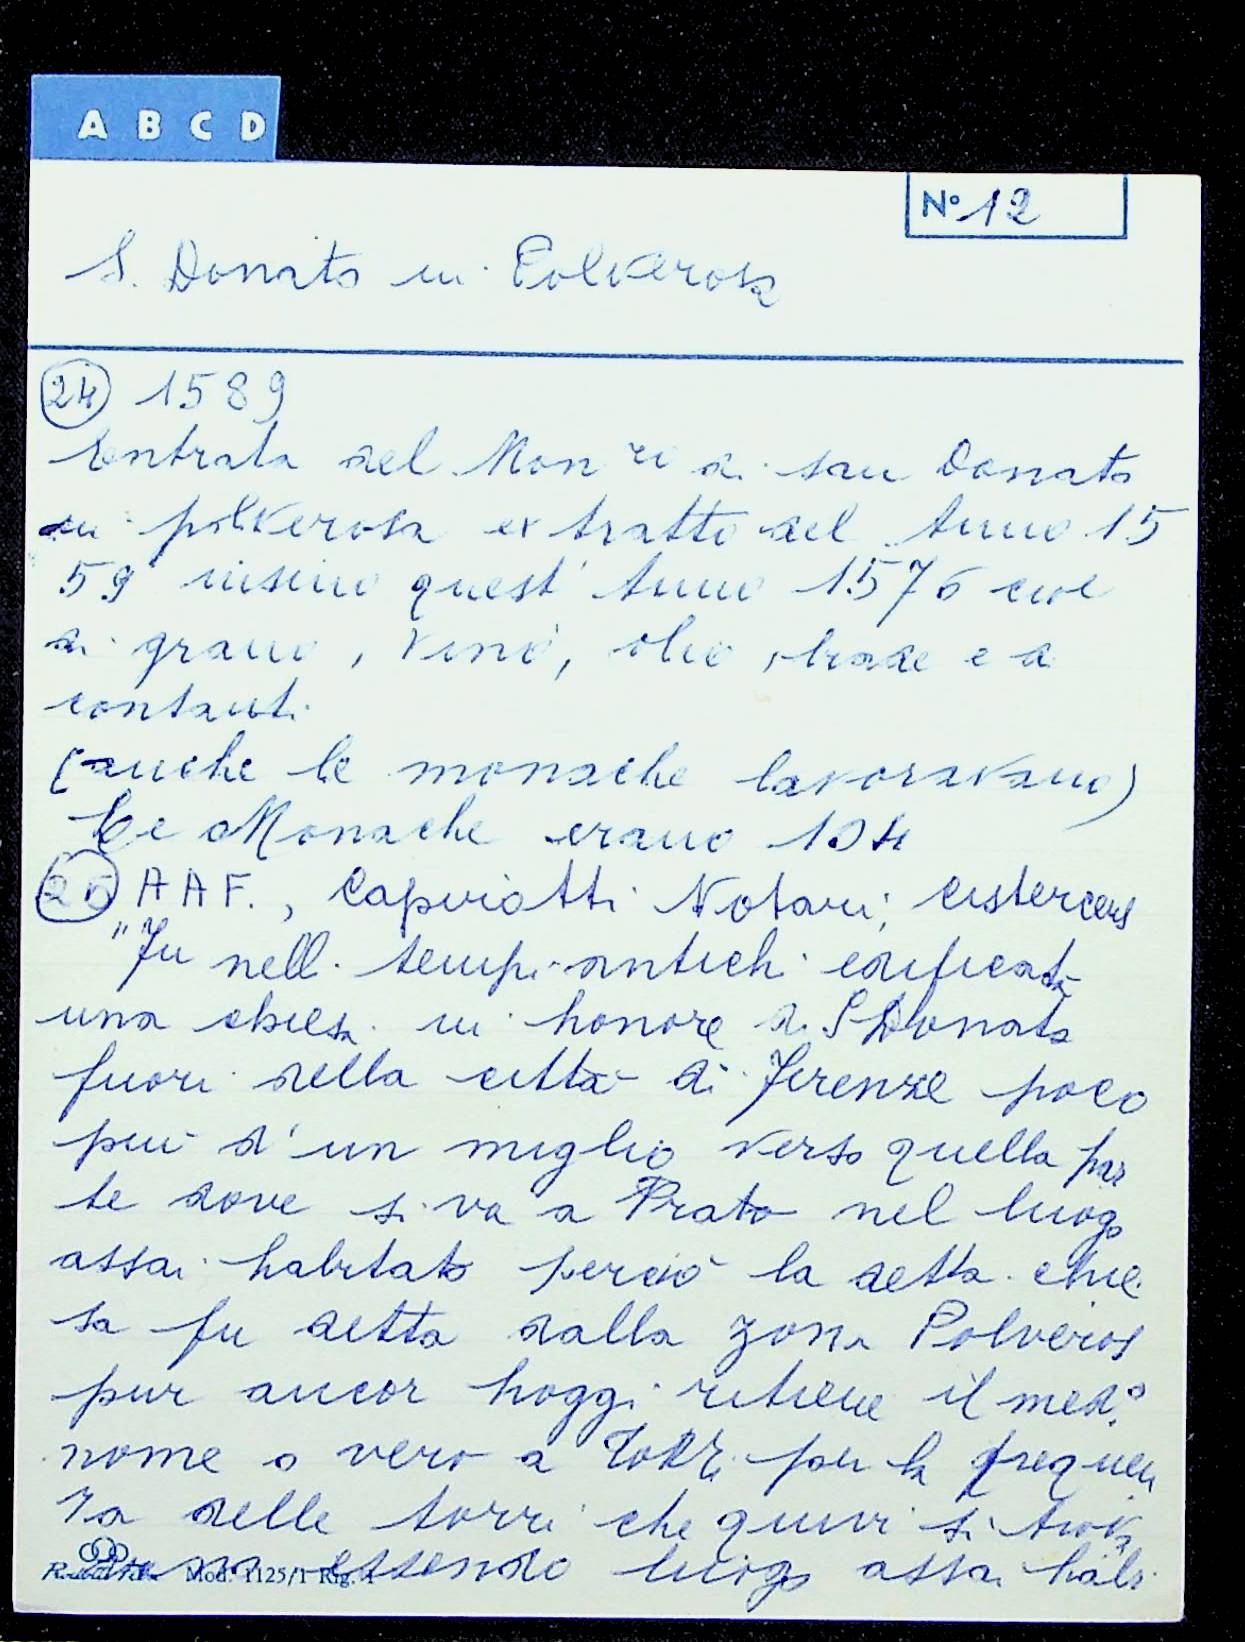 A B C D
N° 12
S. Donato in Polverosa
24 1589
Entrata del Mon ri di san Donato
in polverosa extratto del Anno 15
59 insino quest' Anno 1576 cioè
di grano, vino, olio, biade e di
contanti
(anche le monache lavoravano)
Le Monache erano 104
25 AAF., Notari; cistercens
"Fu nelli tempi antichi edificata
una chiesa in honore di S Donato
fuori della città di Firenze poco
più d'un miglio verso quella par
te dove si va a Prato nel luogo
assai habitato perciò la detta chie
sa fu detta dalla zona Polveros
pur ancor hoggi ritiene il med.o
nome o vero a Torri per la frequen
za delle torri che quivi si trova
essendo luogo assai habi
Mod. 1125/1 Rig. 1